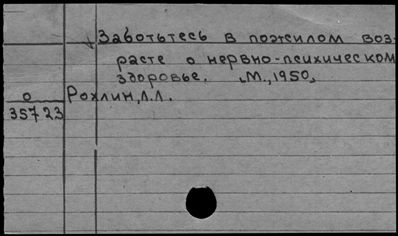 Заботьтесь в пожилом воз-
расте о нервно-психическом
здоровье. М., 1950,
о Рохлин, Л.Л.
35723